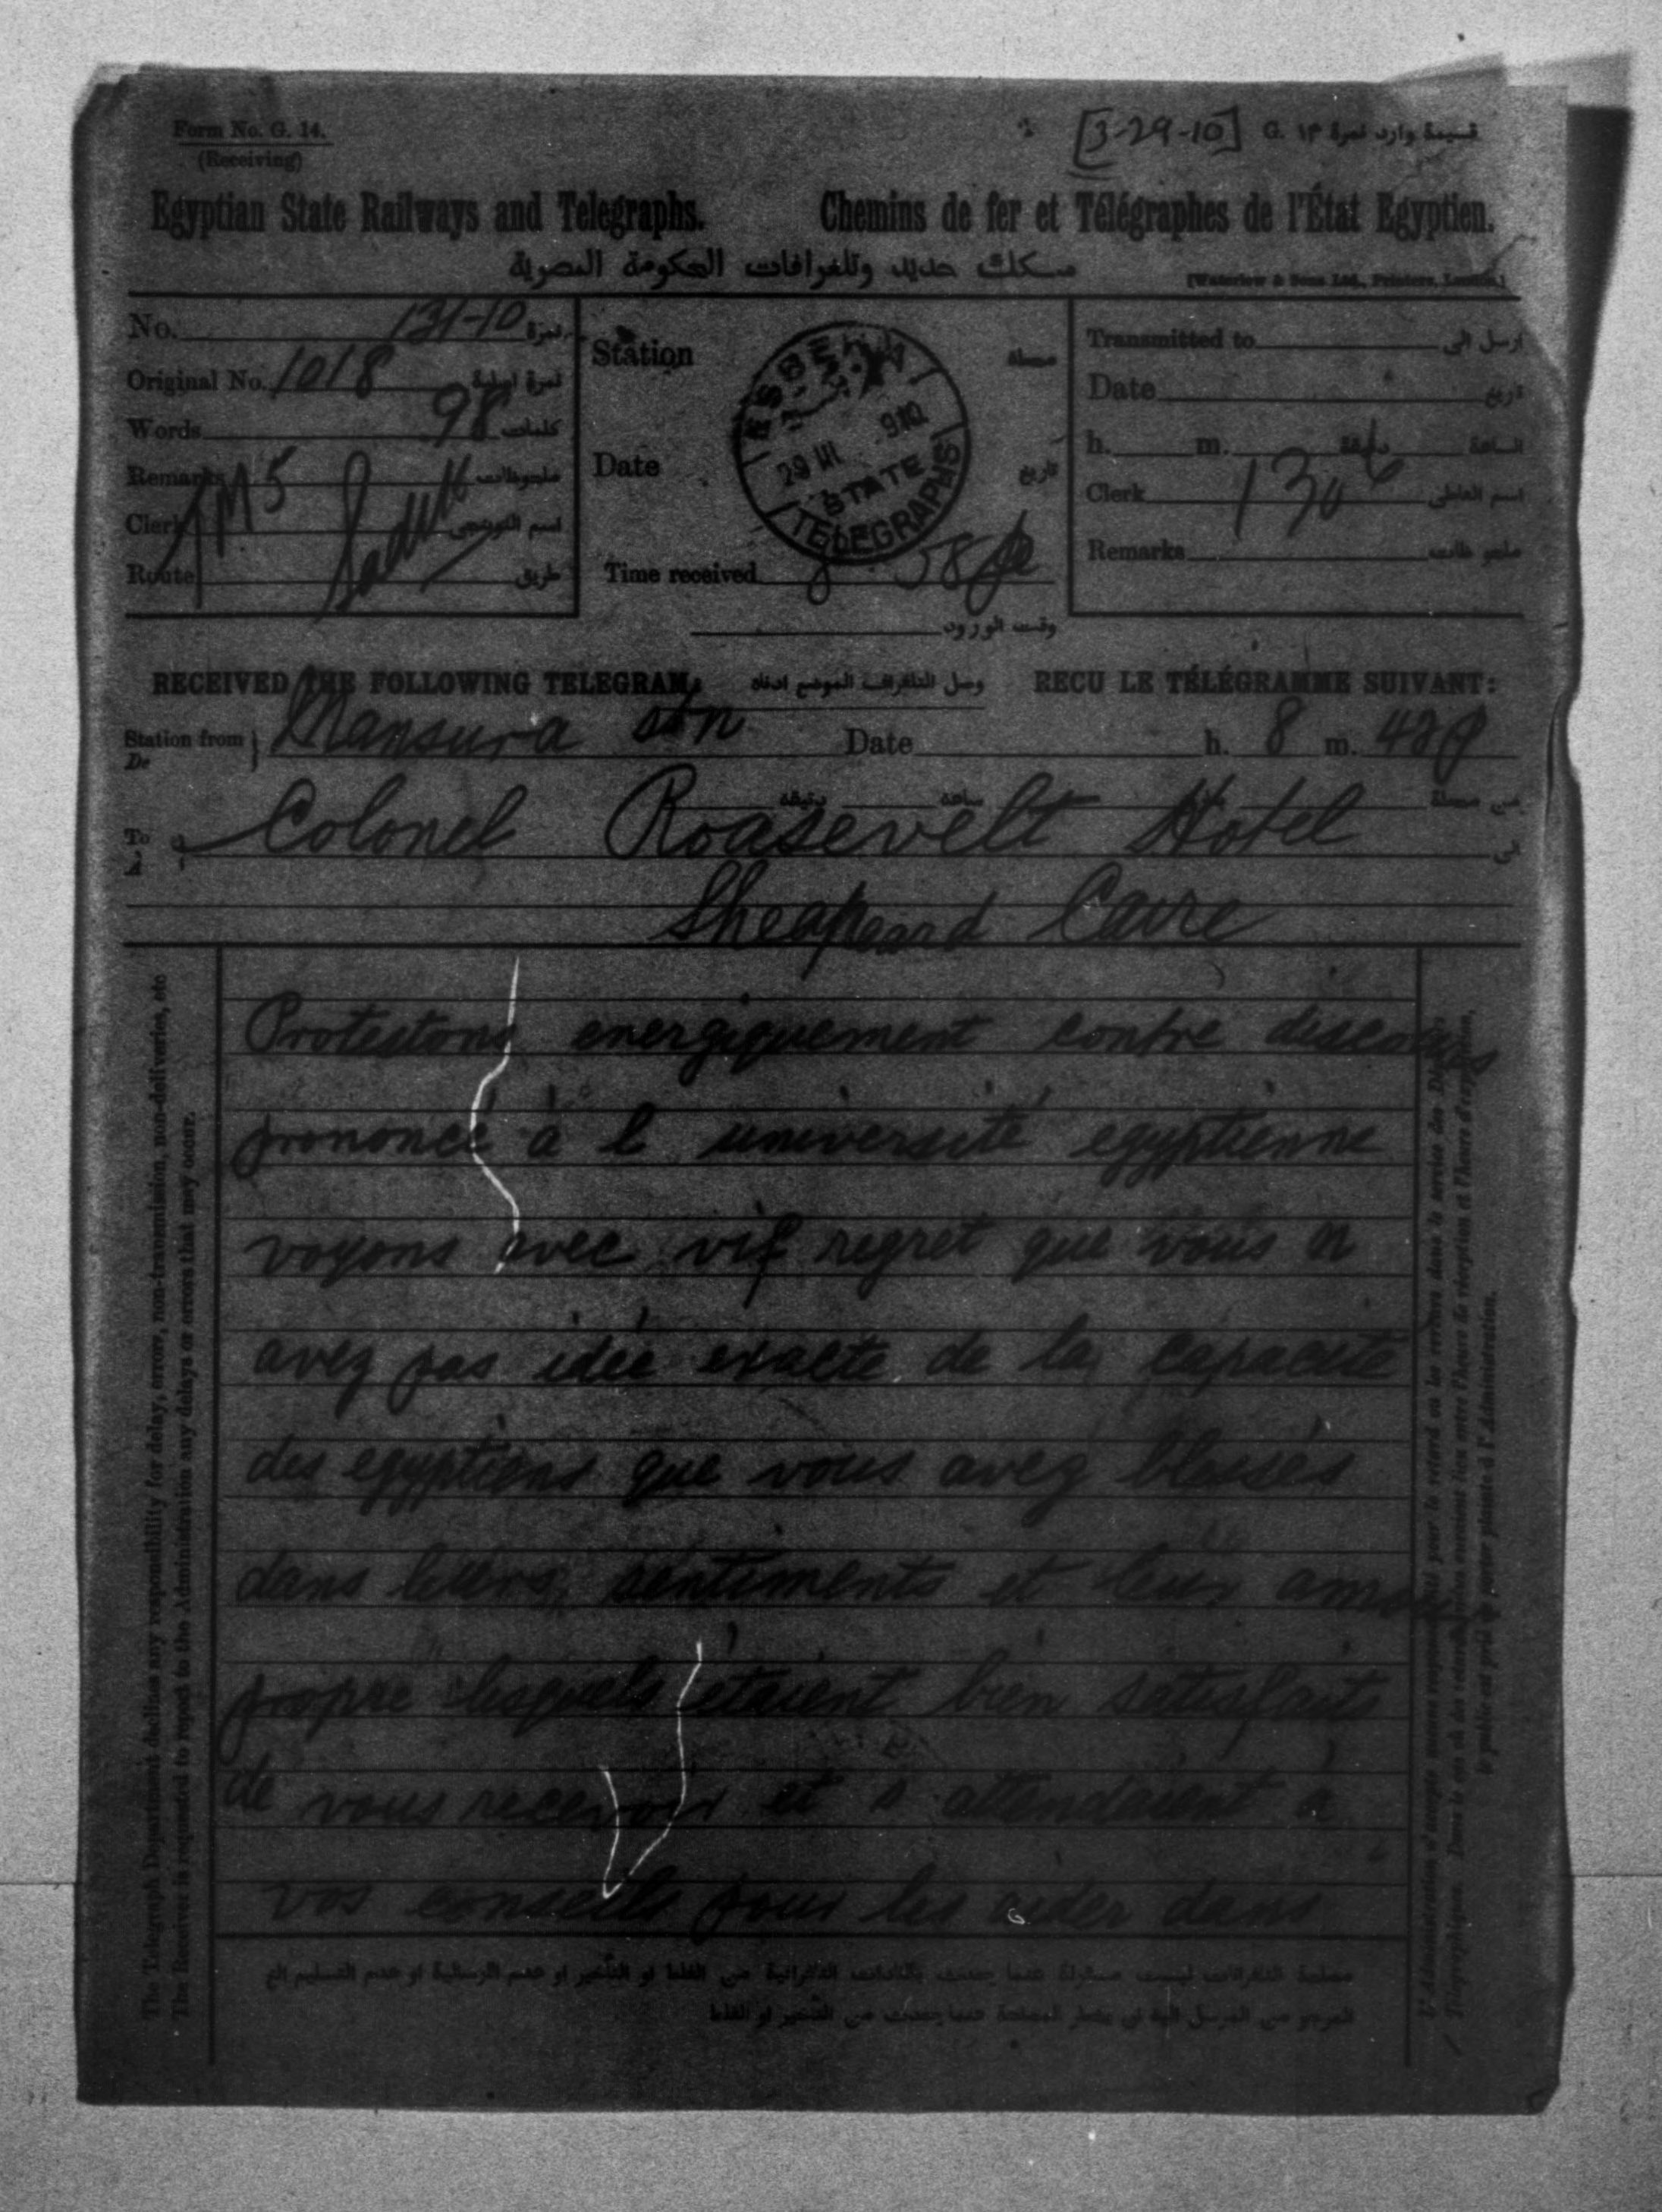 Form No. G. 14.
(Receiving)
[3-29-10]
G. ١٣ قسيمة وارد نمرة
Egyptian State Railways and Telegraphs.
Chemins de fer et Télégraphes de l'État Egyptien.
سكك حديد وتلغرافات الحكومة المصرية
[Waterlow & Sons Ltd., Printers, London.]
No. 131-10 نمرة
Original No. 1018 نمرة اصلية
Words 98 كلمات
Remarks ملحوظات
Clerk
Route طريق
Station محطة
Date تاريخ
ESBEKIA
29 III 910
STATE TELEGRAPHS
Time received 8 58
وقت الورود
Transmitted to ارسل الى
Date تاريخ
h. m. دقيقة الساعة
Clerk
Remarks
RECEIVED THE FOLLOWING TELEGRAM: وصل التلغراف الموضح ادناه RECU LE TÉLÉGRAMME SUIVANT:
Station from De Mansura stn Date h. 8 m. 42 p
دقيقة ساعة من محطة
To à Colonel Roasevelt Hotel الى
Sheapeard Caire
Protestons energiquement contre discours
prononcé à l université egyptienne
voyons avec vif regret que vous n
avez pas idée exacte de la capacité
des egyptiens que vous avez blessés
dans leurs sentiments et leur amour
propre lesquels étaient bien satisfaits
de vous recevoir et s attendaient à
vos conseils pour les aider dans
The Telegraph Department declines any responsibility for delay, errors, non-transmission, non-deliveries, etc
The Receiver is requested to report to the Administration any delays or errors that may occur.
L'Administration n'accepte aucune responsabilité pour le retard ou les erreurs dans le service des Dépêches
Télégraphiques. Dans le cas où des retards
le public est prié de porter plainte à l'Administration.
مصلحة التلغرافات ليست مسئولة عما يحدث بالمخابرات التلغرافية من الغلط او التأخير او عدم الارسالية او عدم التسليم الخ
المرجو من المرسل اليه ان يخطر المصلحة عما يحدث من التأخير او الغلط